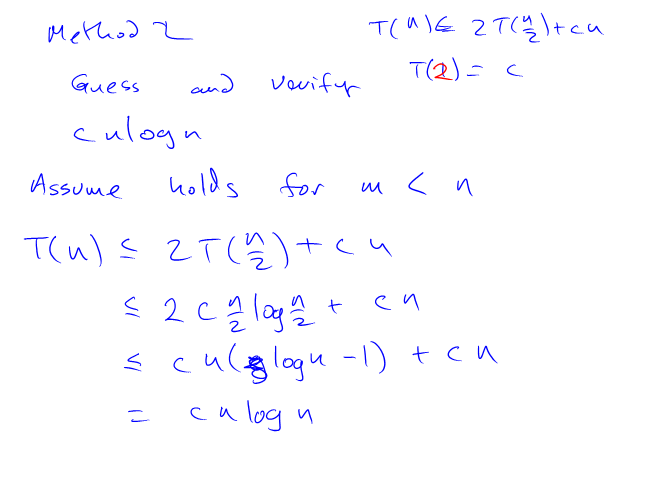 Method 2
T(n) ≤ 2T(n/2) + cn
T(2) = c
Guess and verify
c n log n
Assume holds for m < n
T(n) ≤ 2T(n/2) + cn
≤ 2 c n/2 log n/2 + cn
≤ cn(log n - 1) + cn
= cn log n